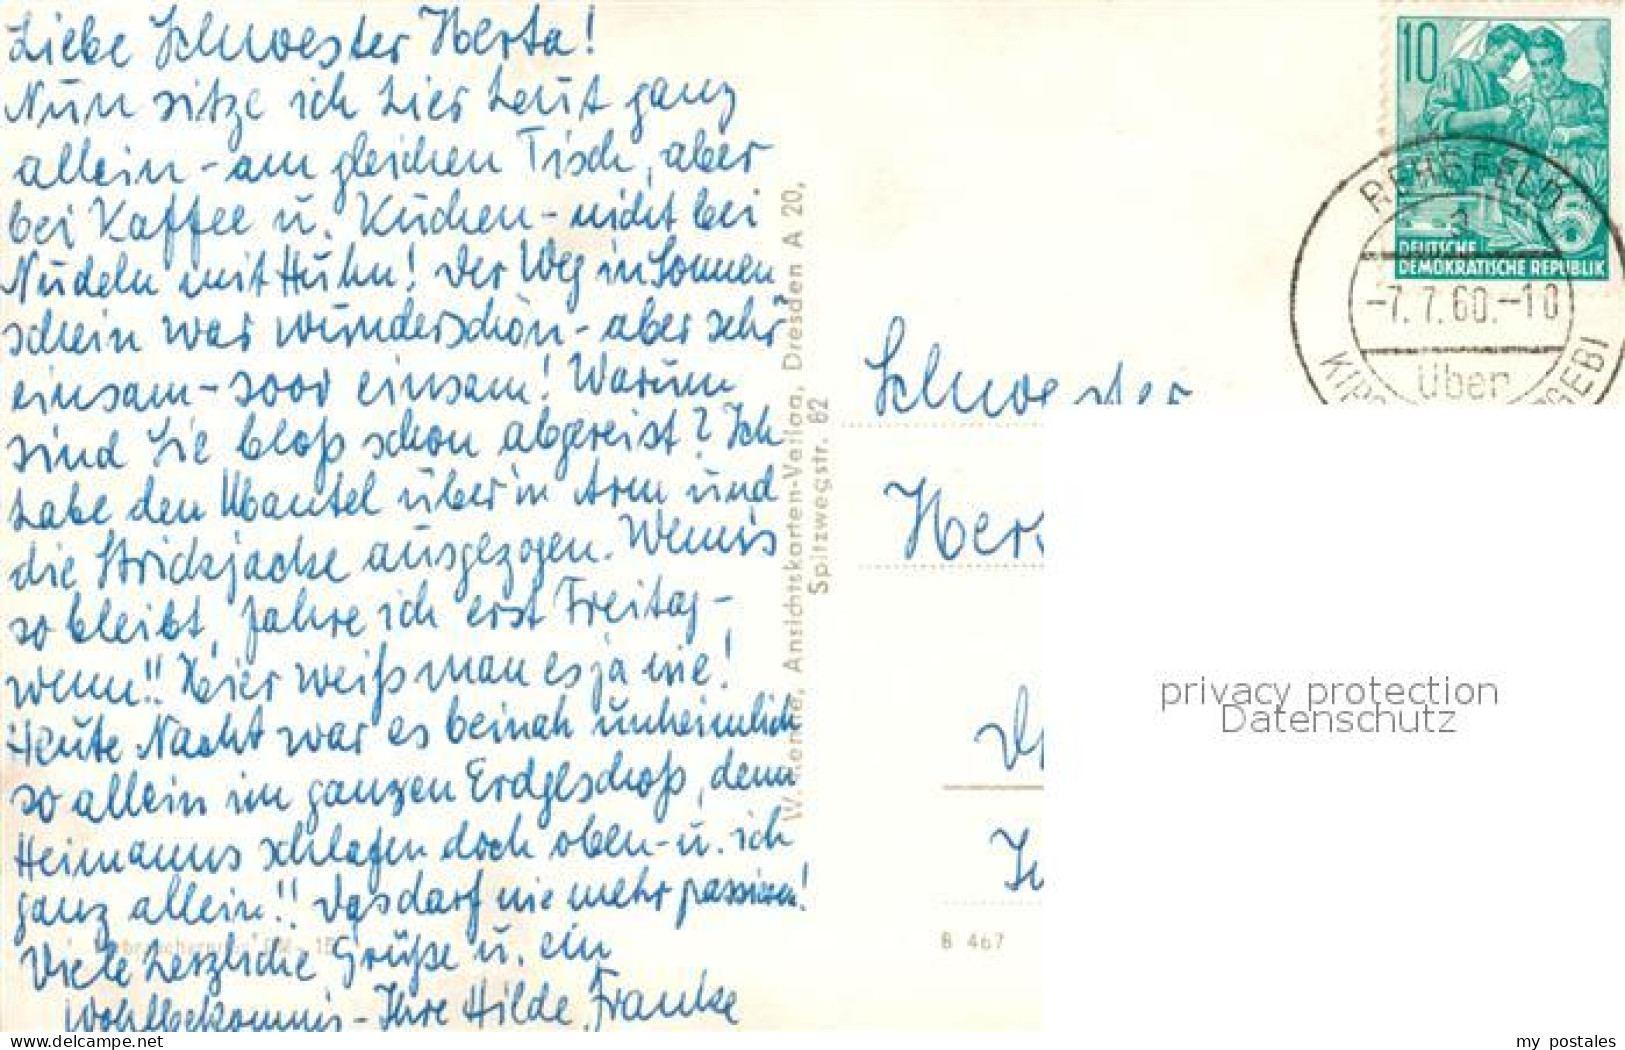 Liebe Schwester Herta!
Nun sitze ich hier heut ganz
allein - am gleichen Tisch, aber
bei Kaffee u. Kuchen - nicht bei
Nudeln mit Huhn! Der Weg in Sonnen
schein war wunderschön - aber sehr
einsam - sooo einsam! Warum
sind Sie bloß schon abgereist? Ich
habe den Mantel über'n Arm und
die Strickjacke ausgezogen. Wenn's
so bleibt, fahre ich erst Freitag -
wenn!! Hier weiß man es ja nie!
Heute Nacht war es beinah unheimlich
so allein im ganzen Erdgeschoß, denn
Heimanns schlafen doch oben - u. ich
ganz allein!! Das darf nie mehr passieren!
Viele herzliche Grüße u. ein
Wohlbekommnis - Ihre Hilde Franke
Ansichtskarten-Verlag, Dresden A 20,
Spitzwegstr. 62
10
DEUTSCHE
DEMOKRATISCHE REPUBLIK
REHEFELD
-7.7.60.-10
über
Schwester
B 467
privacy protection
Datenschutz
www.delcampe.net
my_postales